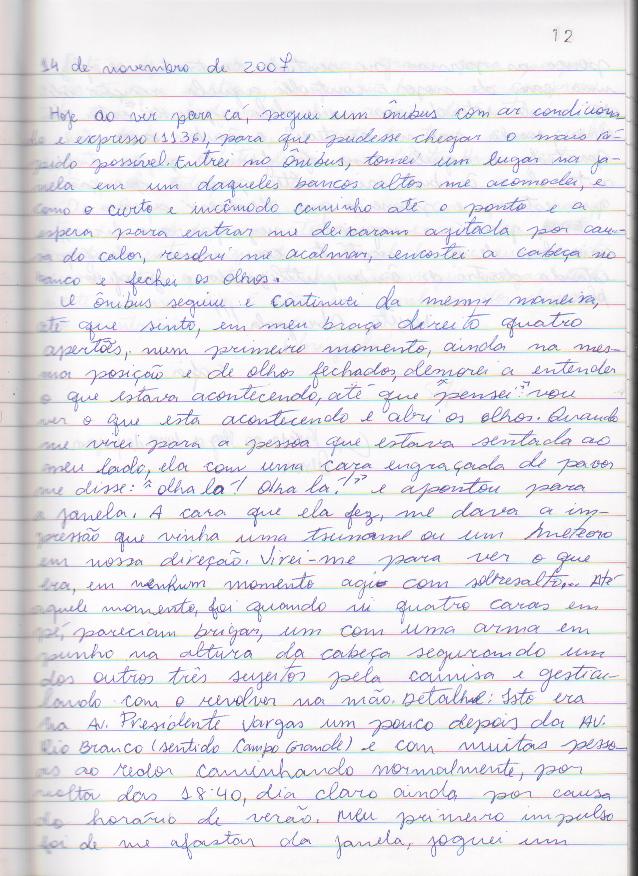 12
14 de novembro de 2007.
Hoje ao vir para cá, peguei um ônibus com ar condiciona
do e expresso (1136), para que pudesse chegar o mais rá-
pido possível. Entrei no ônibus, tomei um lugar na ja-
nela em um daqueles bancos altos me acomodei, e
como o curto e incômodo caminho até o ponto e a
espera para entrar me deixaram agitada por cau-
sa do calor, resolvi me acalmar, encostei a cabeça no
banco e fechei os olhos.
O ônibus seguiu e continuei da mesma maneira,
até que sinto, em meu braço direito quatro
apertões, num primeiro momento, ainda na mes-
ma posição e de olhos fechados, demorei a entender
o que estava acontecendo, até que "pensei": vou
ver o que esta acontecendo e abri os olhos. Quando
me virei para a pessoa que estava sentada ao
meu lado, ela com uma cara engraçada de pavor
me disse: "olha lá! Olha lá!" e apontou para
a janela. A cara que ela fez, me dava a im-
pressão que vinha uma tsuname ou um meteoro
em nossa direção. Virei-me para ver o que
era, em nenhum momento agi com sobresalto... Até
aquele momento, foi quando vi quatro caras em
pé, pareciam brigar, um com uma arma em
punho na altura da cabeça segurando um
dos outros três sujeitos pela camisa e gesticu-
lando com o revolver na mão. Detalhe: Isto era
na Av. Presidente Vargas um pouco depois da AV.
Rio Branco (sentido Campo Grande) e com muitas pesso-
as ao redor caminhando normalmente, por
volta das 18:40, dia claro ainda por causa
do horário de verão. Meu primeiro impulso
foi de me afastar da janela, joguei um